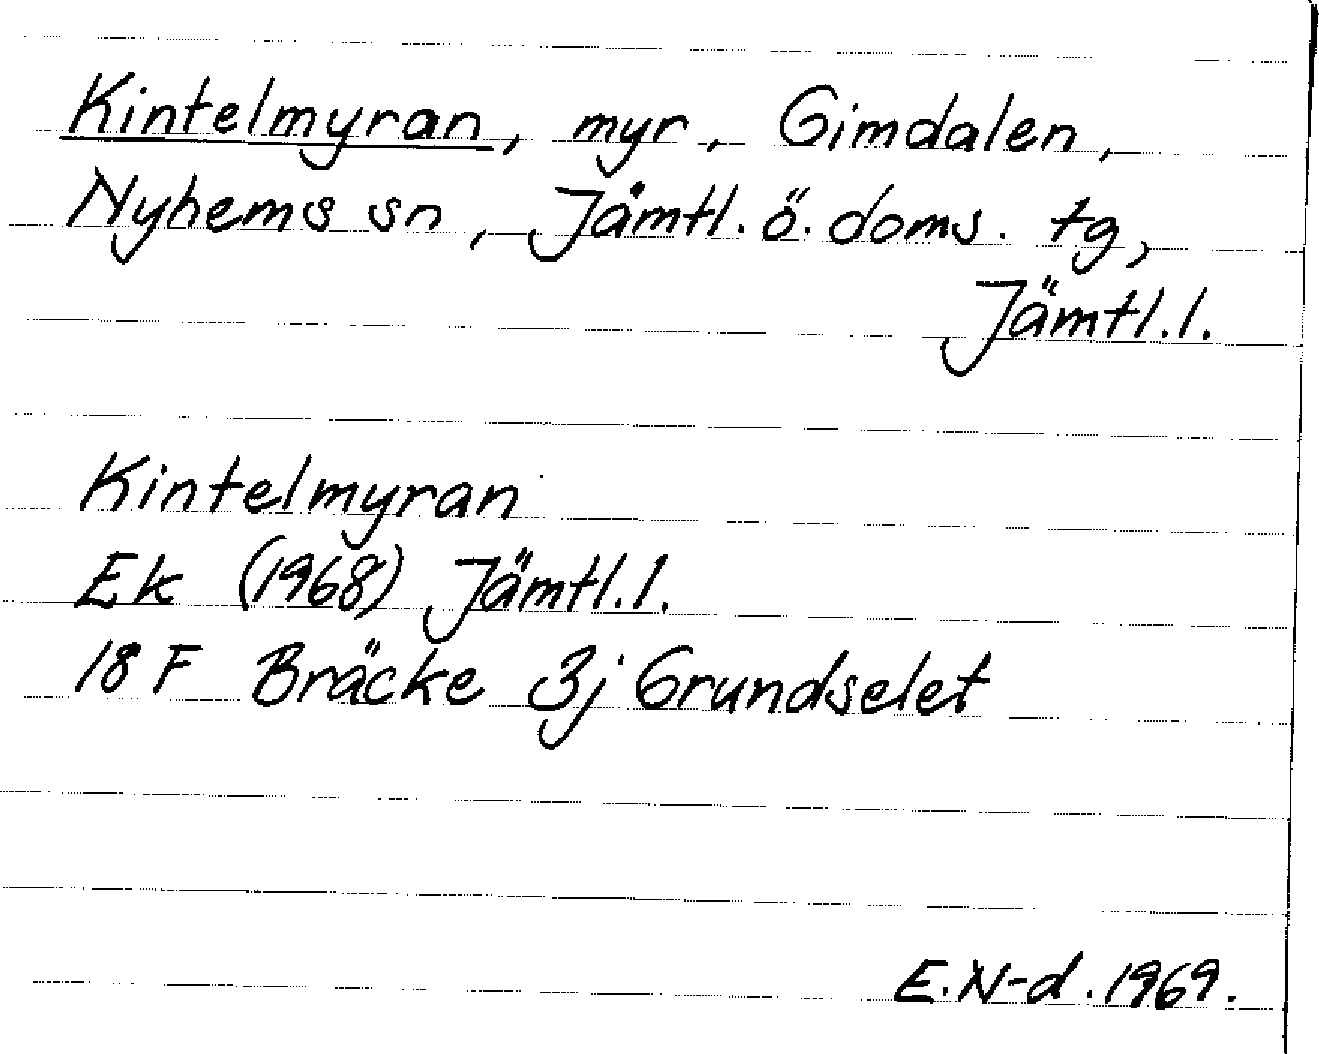 Kintelmyran, myr, Gimdalen,
Nyhems sn, Jämtl. ö. doms. tg,
Jämtl. l.
Kintelmyran
Ek (1968) Jämtl. l.
18 F Bräcke 3j Grundselet
E. N-d. 1969.